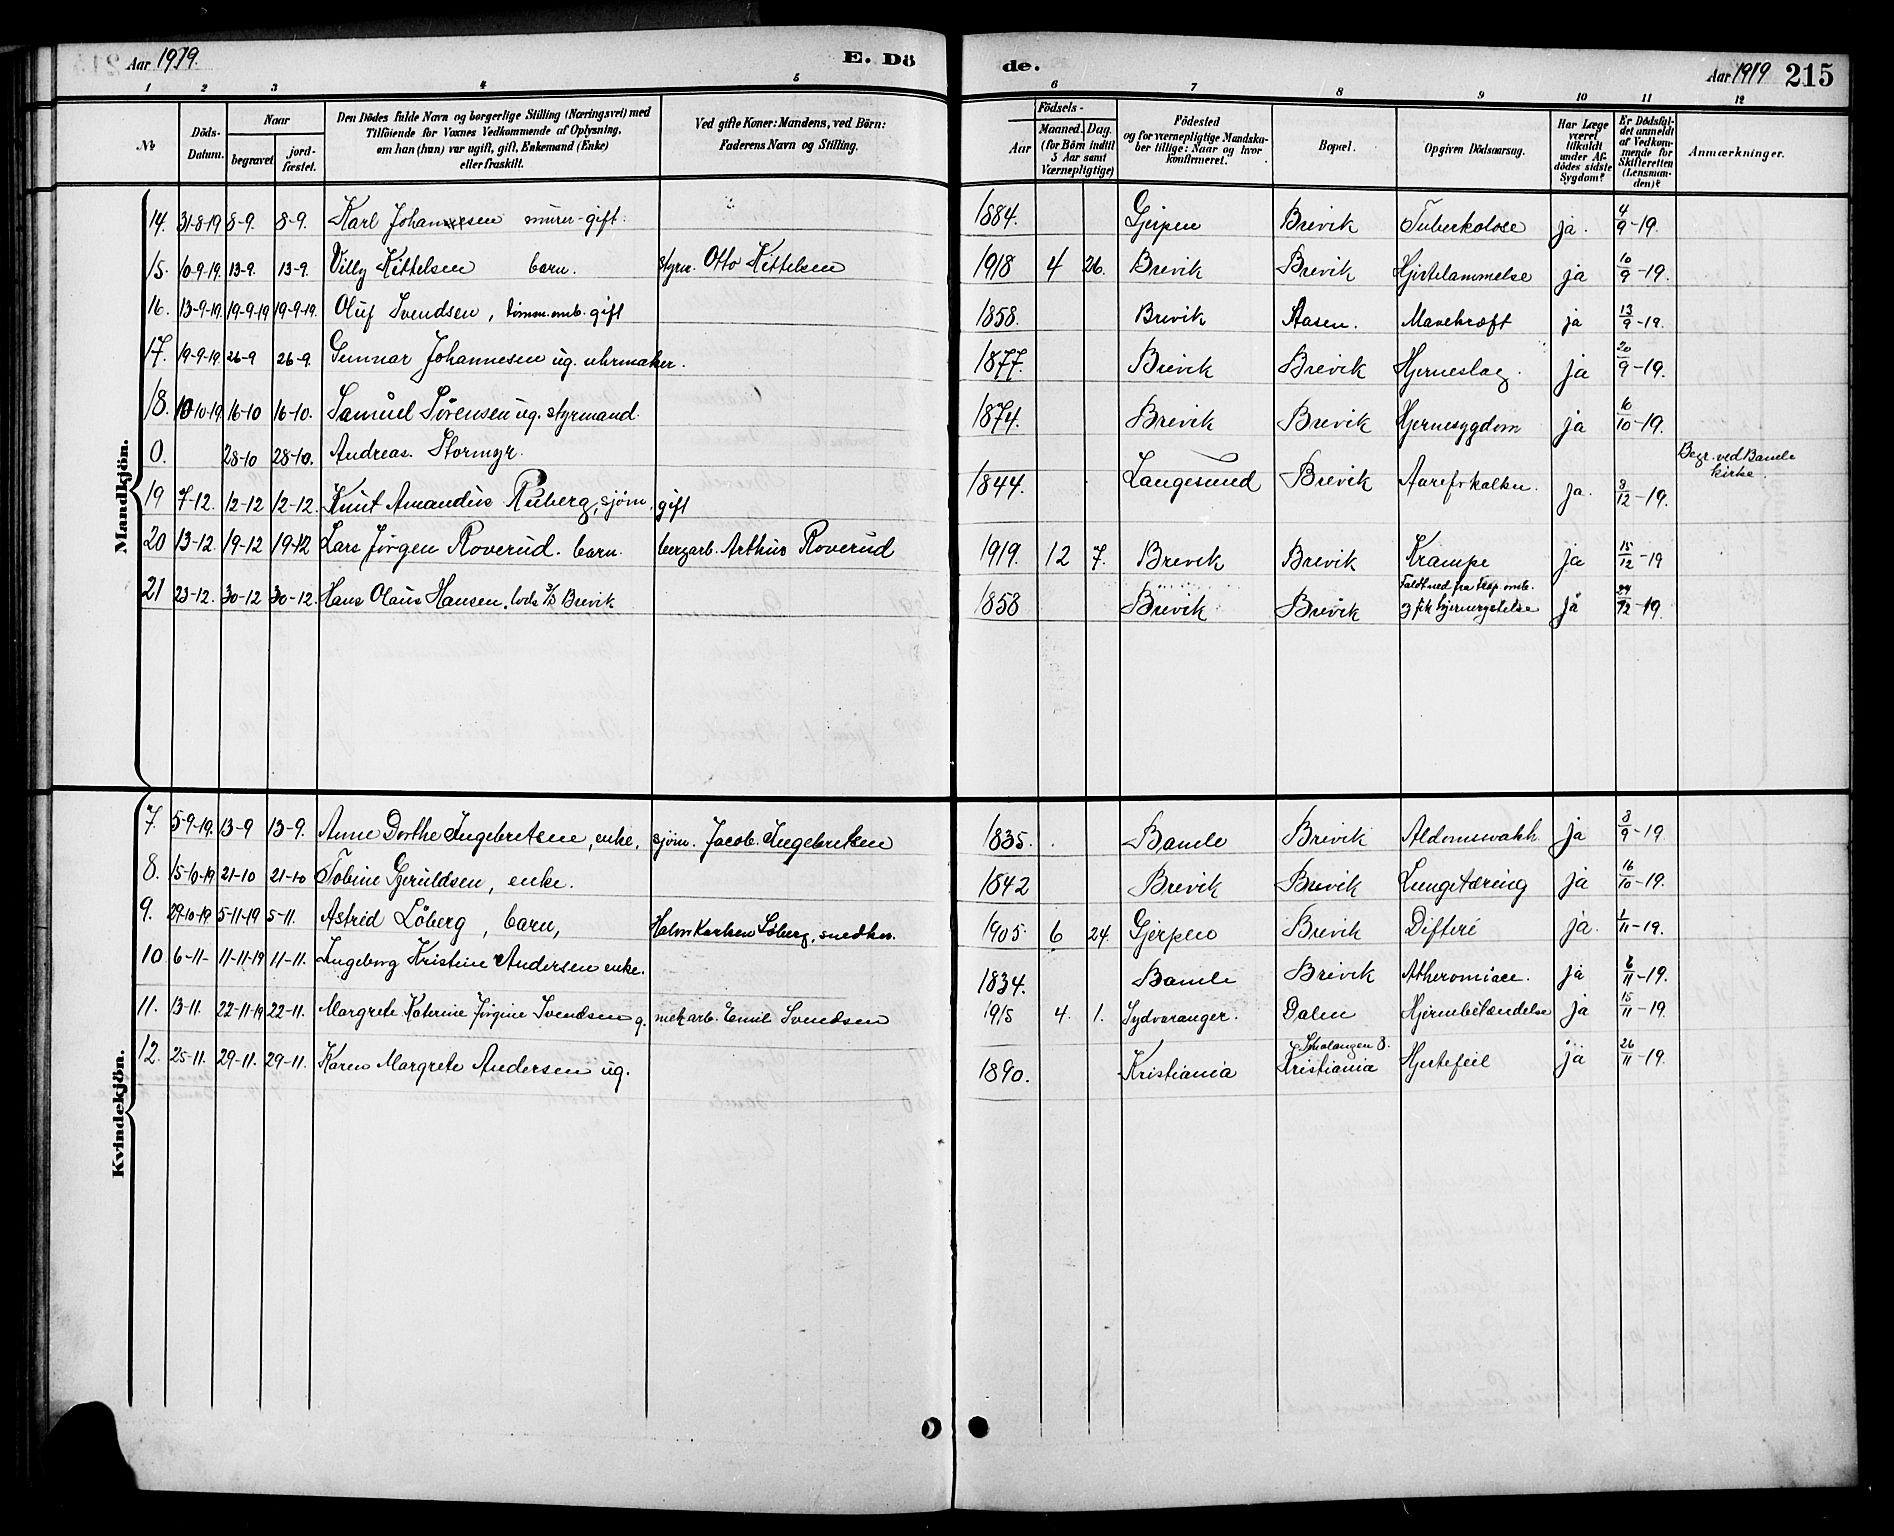 Aar 1919. E. Dö de. Aar 1919 215
1 2 3 4 5 6 7 8 9 10 11 12
№ Döds-Datum. Naar begravet jord-fæstet. Den Dödes fulde Navn og borgerlige Stilling (Næringsvei) med Tilföiende for Voxnes Vedkommende af Oplysning, om han (hun) var ugift, gift, Enkemand (Enke) eller fraskilt. Ved gifte Koner: Mandens, ved Börn: Faderens Navn og Stilling. Födsels- Aar Maaned. Dag. (for Börn indtil 5 Aar samt Værnepligtige) Födested og for værnepligtige Mandskaber tillige: Naar og hvor konfirmeret. Bopæl. Opgiven Dödsaarsag. Har Læge været tilkaldt under Afdödes sidste Sygdom? Er Dödsfaldet anmeldt af Vedkommende for Skifteretten (Lensmanden)? Anmærkninger.
Mandkjön.
14. 31-8-19 8-9. 8-9. Karl Johansen murer gift. 1884. Gjerpen Brevik Tuberkolose ja. 4/9-19.
15. 10-9-19. 13-9. 13-9. Villy Kittelsen barn. styrm. Otto Kittelsen 1918 4 26. Brevik Brevik Hjertelammelse ja 10/9-19.
16. 13-9-19. 19-9-19 19-9-19. Oluf Svendsen, tømm.emb. gift 1858. Brevik Aasen. Mavekræft ja 13/9-19.
17. 19-9-19. 26-9 26-9. Gunnar Johannesen ug. uhrmaker. 1877. Brevik Brevik Hjerneslag. ja 20/9-19.
18. 10-10-19. 16-10 16-10. Samuel Sørensen ug. styrmand. 1874. Brevik Brevik Hjernesygdom ja 16/10-19.
0. 28-10 28-10. Andreas Stormyr. Begr. ved Bamle kirke.
19 7-12. 12-12 12-12. Knut Amandus Ruberg, sjøm. gift 1844. Langesund Brevik Aareforkalkn. ja. 9/12-19.
20 13-12. 19-12 19-12 Lars Jørgen Roverud. barn. bergarb. Arthur Roverud 1919. 12 7. Brevik Brevik Krampe ja 15/12-19
21 23-12. 30-12 30-12. Hans Olaus Hansen, lods Brevik 1858 Brevik Brevik Faldt ned fra trap. omb. og fik hjernerystelse ja 29/12-19.
Kvindekjön.
7. 5-9-19. 13-9 13-9. Anne Dorthe Ingebretsen, enke, sjøm. Jacob Ingebretsen 1835. Bamle Brevik Aldomssvakh ja 8/9-19.
8. 15-10-19 21-10 21-10 Tobine Gjeruldsen, enke. 1842 Brevik Brevik Lungetæring ja 16/10-19.
9. 29-10-19. 5-11-19 5-11. Astrid Löberg, barn, Halvor Karlsen Löberg, snedker. 1905 6 24. Gjerpen Brevik Difteri ja. 1/11-19.
10 6-11- 11-11-19 11-11. Ingeborg Kristine Andersen enke. 1834. Bamle Brevik Atheromiace. ja 8/11-19.
11. 13-11. 22-11-19 22-11. Margrete Katerine Jørgine Svendsen g. mek arb. Emil Svendsen 1915 4. 1. Sydvaranger. Dalen Hjernebetændelse ja 15/11-19.
12. 25-11. 29-11. 29-11. Karen Margrete Andersen ug. 1890. Kristiania Kristiania Hjertefeil ja 26/11-19.